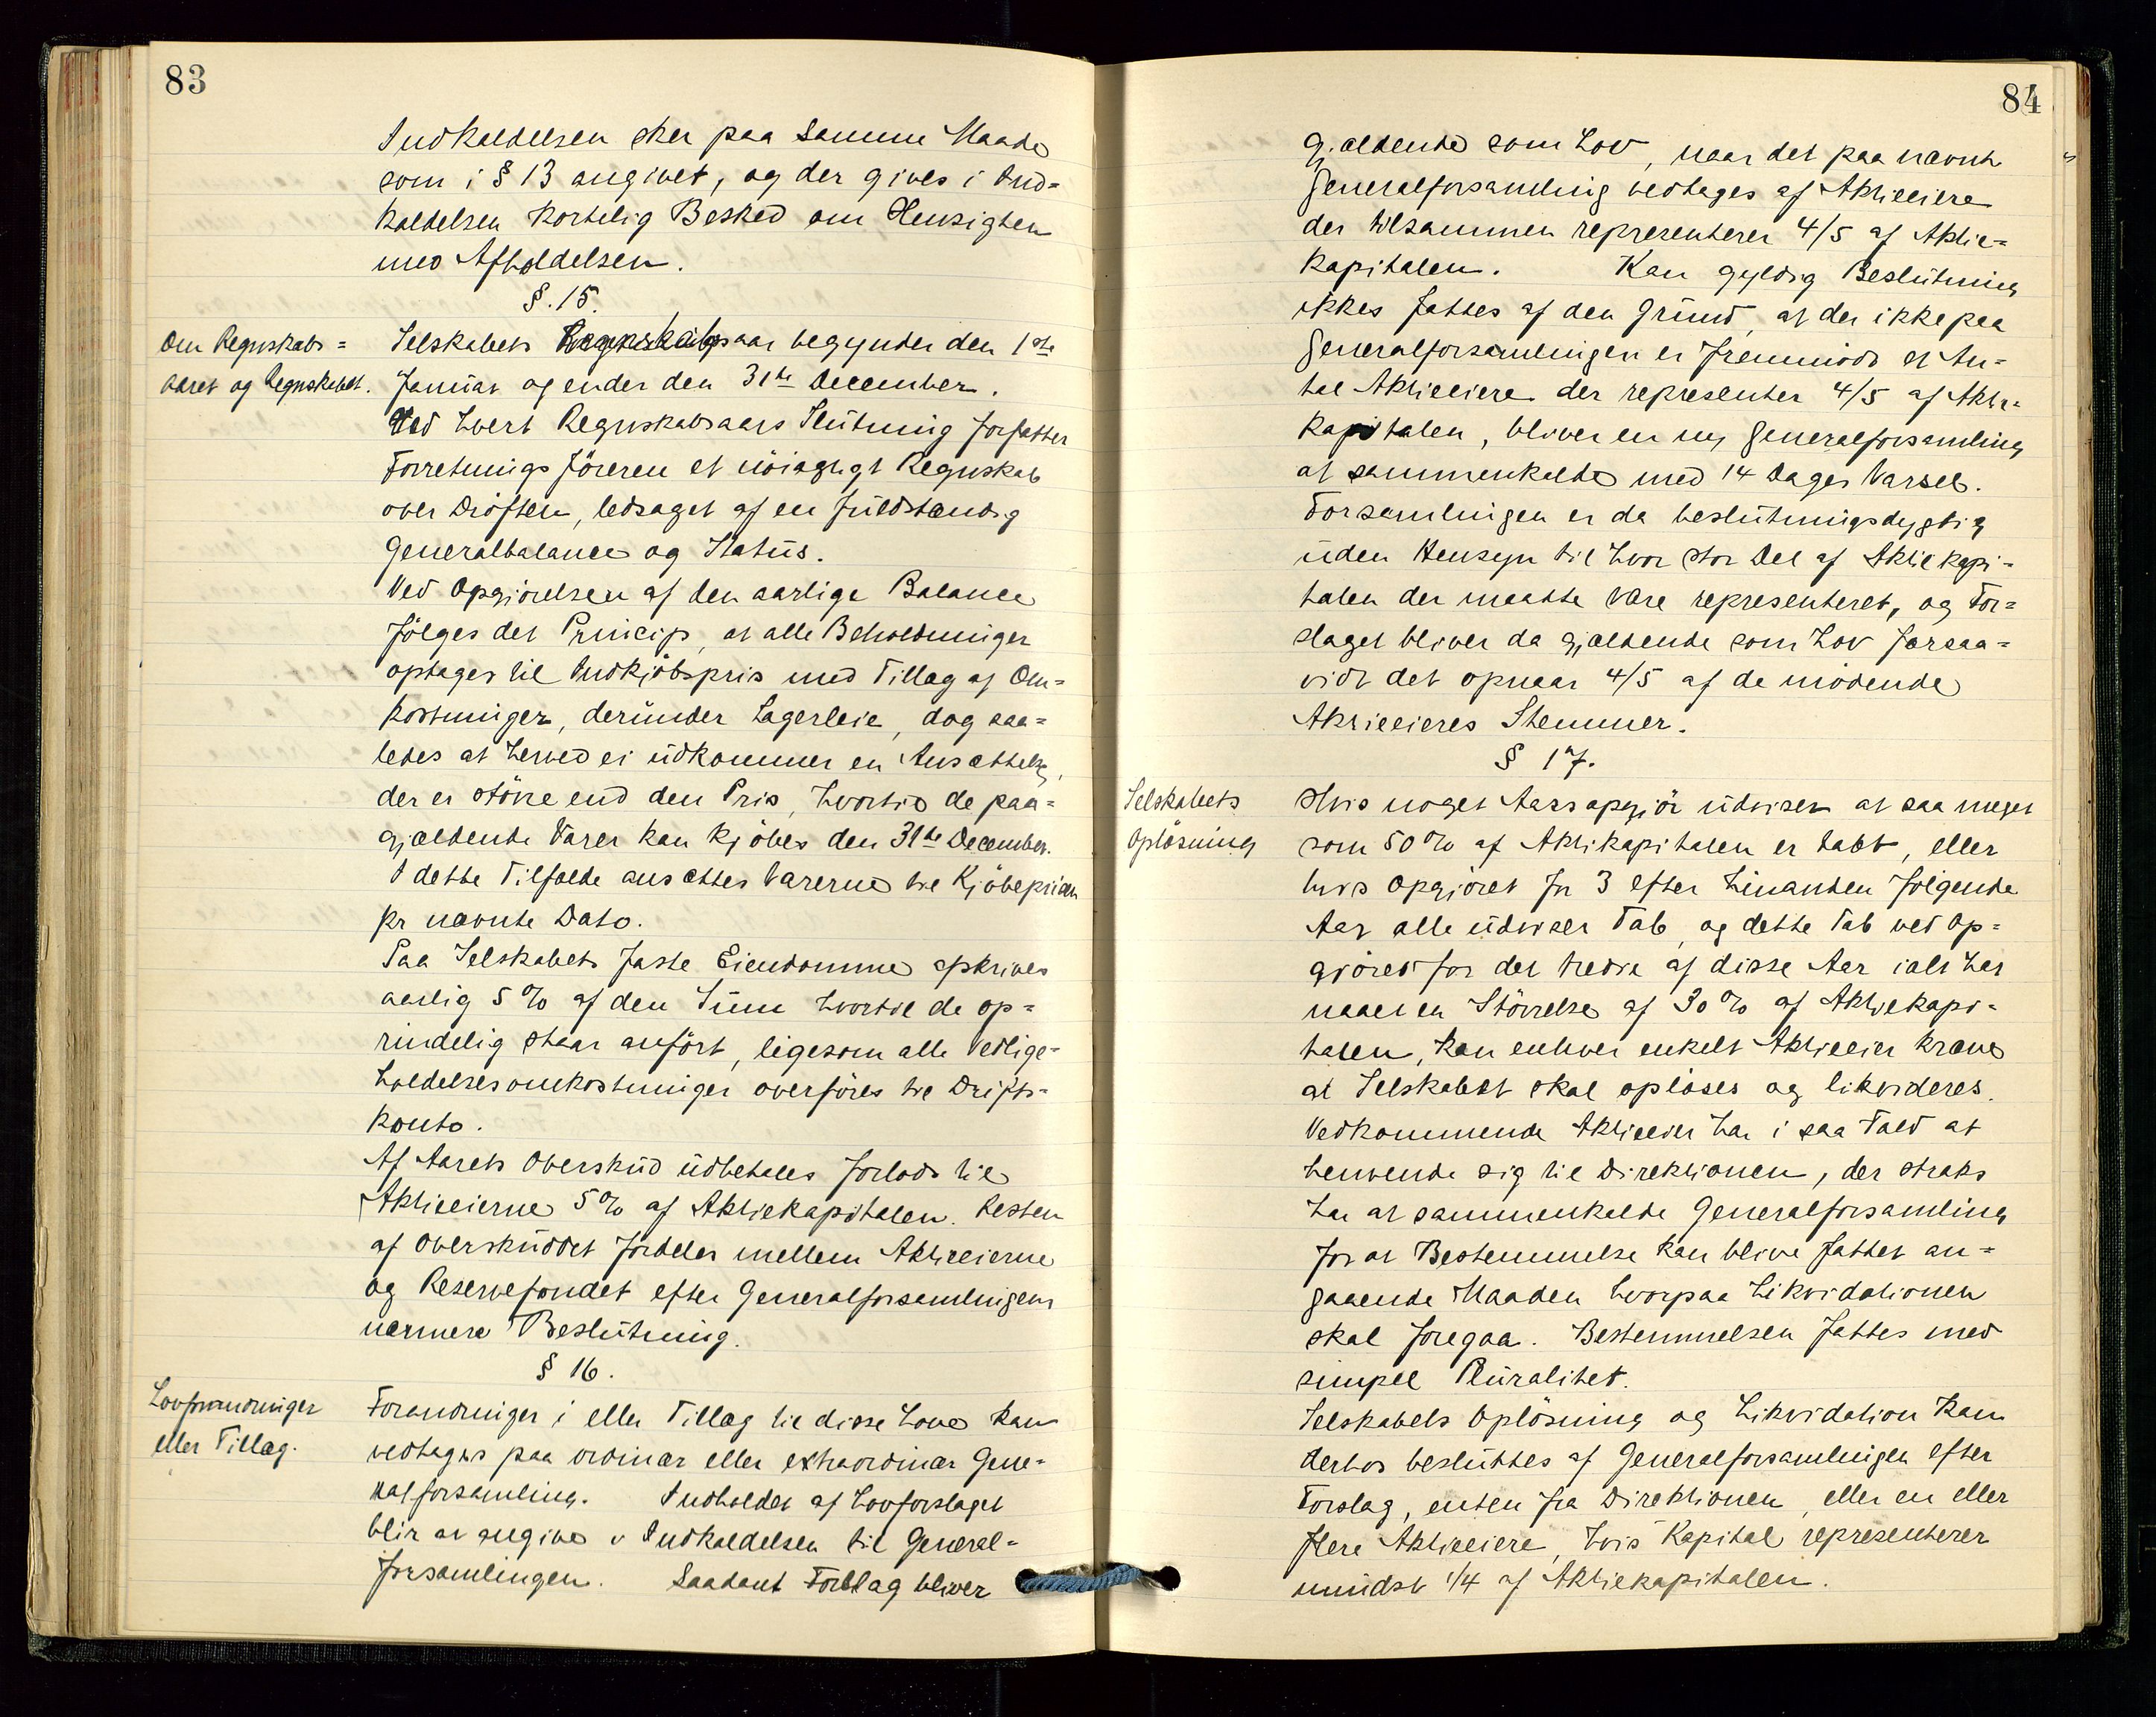 83
Indkaldelsen sker paa samme Maade
som i § 13 angivet, og der gives i Ind=
kaldelsen kortelig Besked om Hensigten
med Afholdelsen.
§. 15.
Om Regnskabs=
aaret og Regnskabet.
Selskabets Regnskabsaar begynder den 1ste
Januar og ender den 31te December.
Ved hvert Regnskabsaars Slutning forfatter
Forretningsföreren et nöiagtigt Regnskab
over Driften, ledsaget af en fuldstændig
Generalbalance og Status.
Ved Opgjörelsen af den aarlige Balance
fölges det Princip, at alle Beholdninger
optages til Indkjöbspris med Tillæg af Om=
kostninger, derunder Lagerleie, dog saa=
ledes at herved ei udkommer en Ansættelse,
der er större end den Pris, hvortil de paa=
gjældende Varer kan kjöbes den 31te December.
I dette Tilfælde ansættes Varerne til Kjöbeprisen
pr nævnte Dato.
Paa Selskabets faste Eiendomme afskrives
aarlig 5 % af den Sum hvortil de op=
rindelig staar anfört, ligesom alle Vedlige=
holdelsesomkostninger overföres til Drifts=
konto.
Af Aarets Overskud udbetales forlods til
Aktieeierne 5% af Aktiekapitalen. Resten
af Overskuddet fordeles mellem Aktieeierne
og Reservefondet efter Generalforsamlingens
nærmere Beslutning.
§ 16.
Lovforandringer
eller Tillæg.
Forandringer i eller Tillæg til disse Love kan
vedtages paa ordinær eller extraordinær Gene=
ralforsamling. Indholdet af Lovforslaget
blir at angive i Indkaldelsen til General=
forsamlingen. Saadant Forslag bliver
84
gjældende som Lov, naar det paa nævnte
Generalforsamling vedtages af Aktieeiere
der tilsammen representerer 4/5 af Aktie=
kapitalen. Kan gyldig Beslutning
ikkes fattes af den Grund, at der ikke paa
Generalforsamlingen er fremmödt et An=
tal Aktieeiere der representer 4/5 af Aktie=
kapitalen, bliver en ny Generalforsamling
at sammenkalde med 14 Dages Varsel.
Forsamlingen er da beslutningsdygtig
uden Hensyn til hvor stor Del af Aktiekapi=
talen der maatte være representeret, og For=
slaget bliver da gjældende som Lov forsaa=
vidt det opnaar 4/5 af de mödende
Aktieeieres Stemmer.
§ 17.
Selskabets
Oplösning
Hvis noget Aarsopgjör udviser at saa meget
som 50 % af Aktikapitalen er tabt, eller
hvis Opgjöret for 3 efter hinanden fölgende
Aar alle udviser Tab, og dette Tab ved Op=
gjöret for det tredie af disse Aar ialt har
naaet en Störrelse af 30 % af Aktiekapi=
talen, kan enhver enkelt Aktieeier kræve
at Selskabet skal oplöses og likvideres.
Vedkommende Aktieeier har i saa Fald at
henvende sig til Direktionen, der straks
har at sammenkalde Generalforsamling
for at Bestemmelse kan blive fattet an=
gaaende Maaden hvorpaa Likvidationen
skal foregaa. Bestemmelsen fattes med
simpel Pluralitet.
Selskabets Oplösning og Likvidation kan
derhos besluttes af Generalforsamlingen efter
Forslag, enten fra Direktionen, eller en eller
flere Aktieeiere, hvis Kapital representerer
mindst 1/4 af Aktiekapitalen.